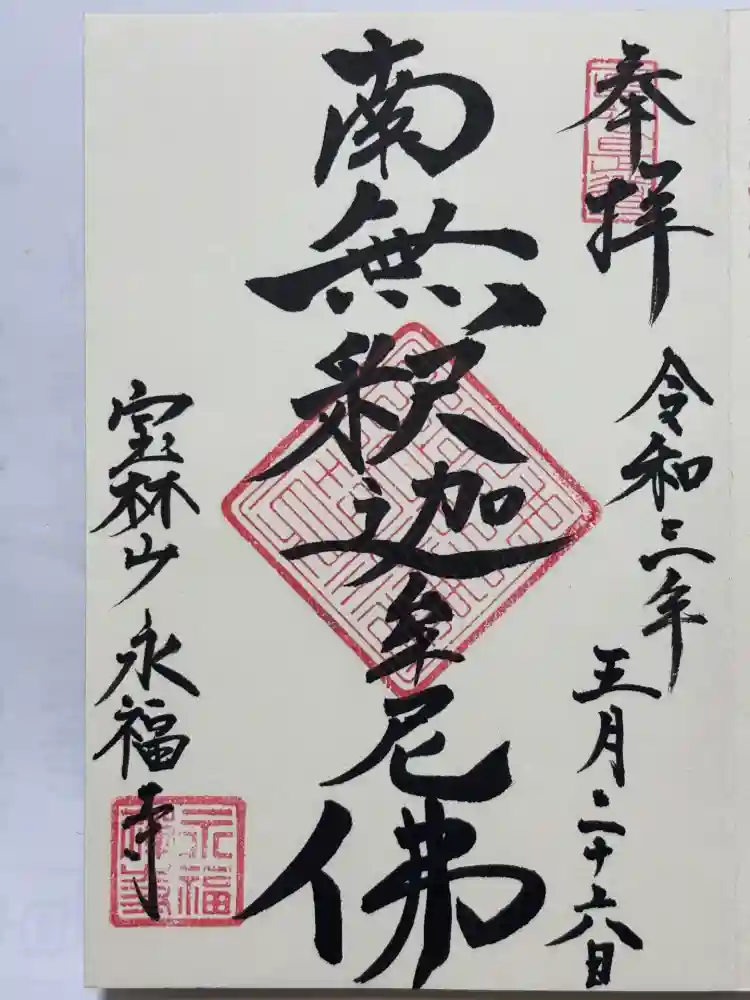 奉拝
令和三年
五月二十六日
南無釈迦牟尼佛
宝林山 永福寺